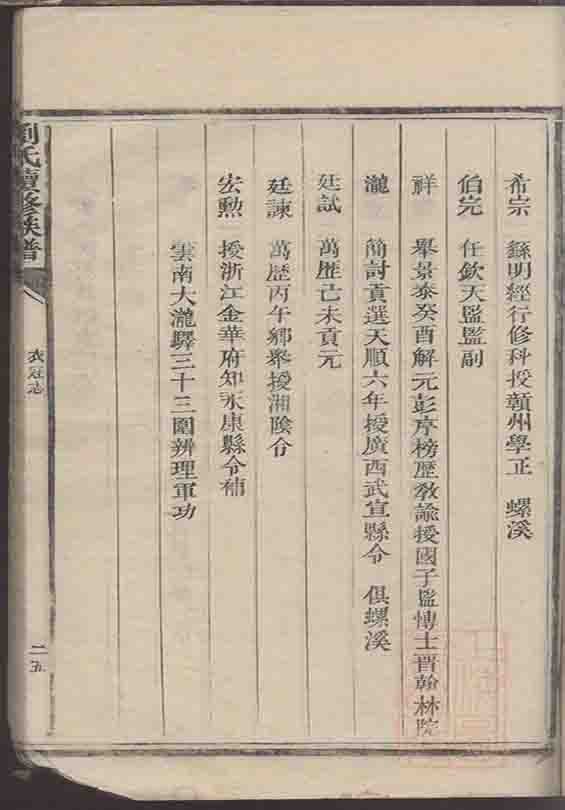 希宗 繇明經行修科授贛州學正 螺溪
伯完 任欽天監監副
祥 舉景泰癸酉解元彭序榜歷敎諭授國子監博士晋翰林院
瀧 簡討貢選天順六年授廣西武宣縣令 俱螺溪
廷試 萬歷己未貢元
廷諫 萬歷丙午鄉舉授湘陰令
宏勲 授浙江金華府知永康縣令補
雲南大瀧驛三十三圍辨理軍功
劉氏續修族譜
衣冠志
二五